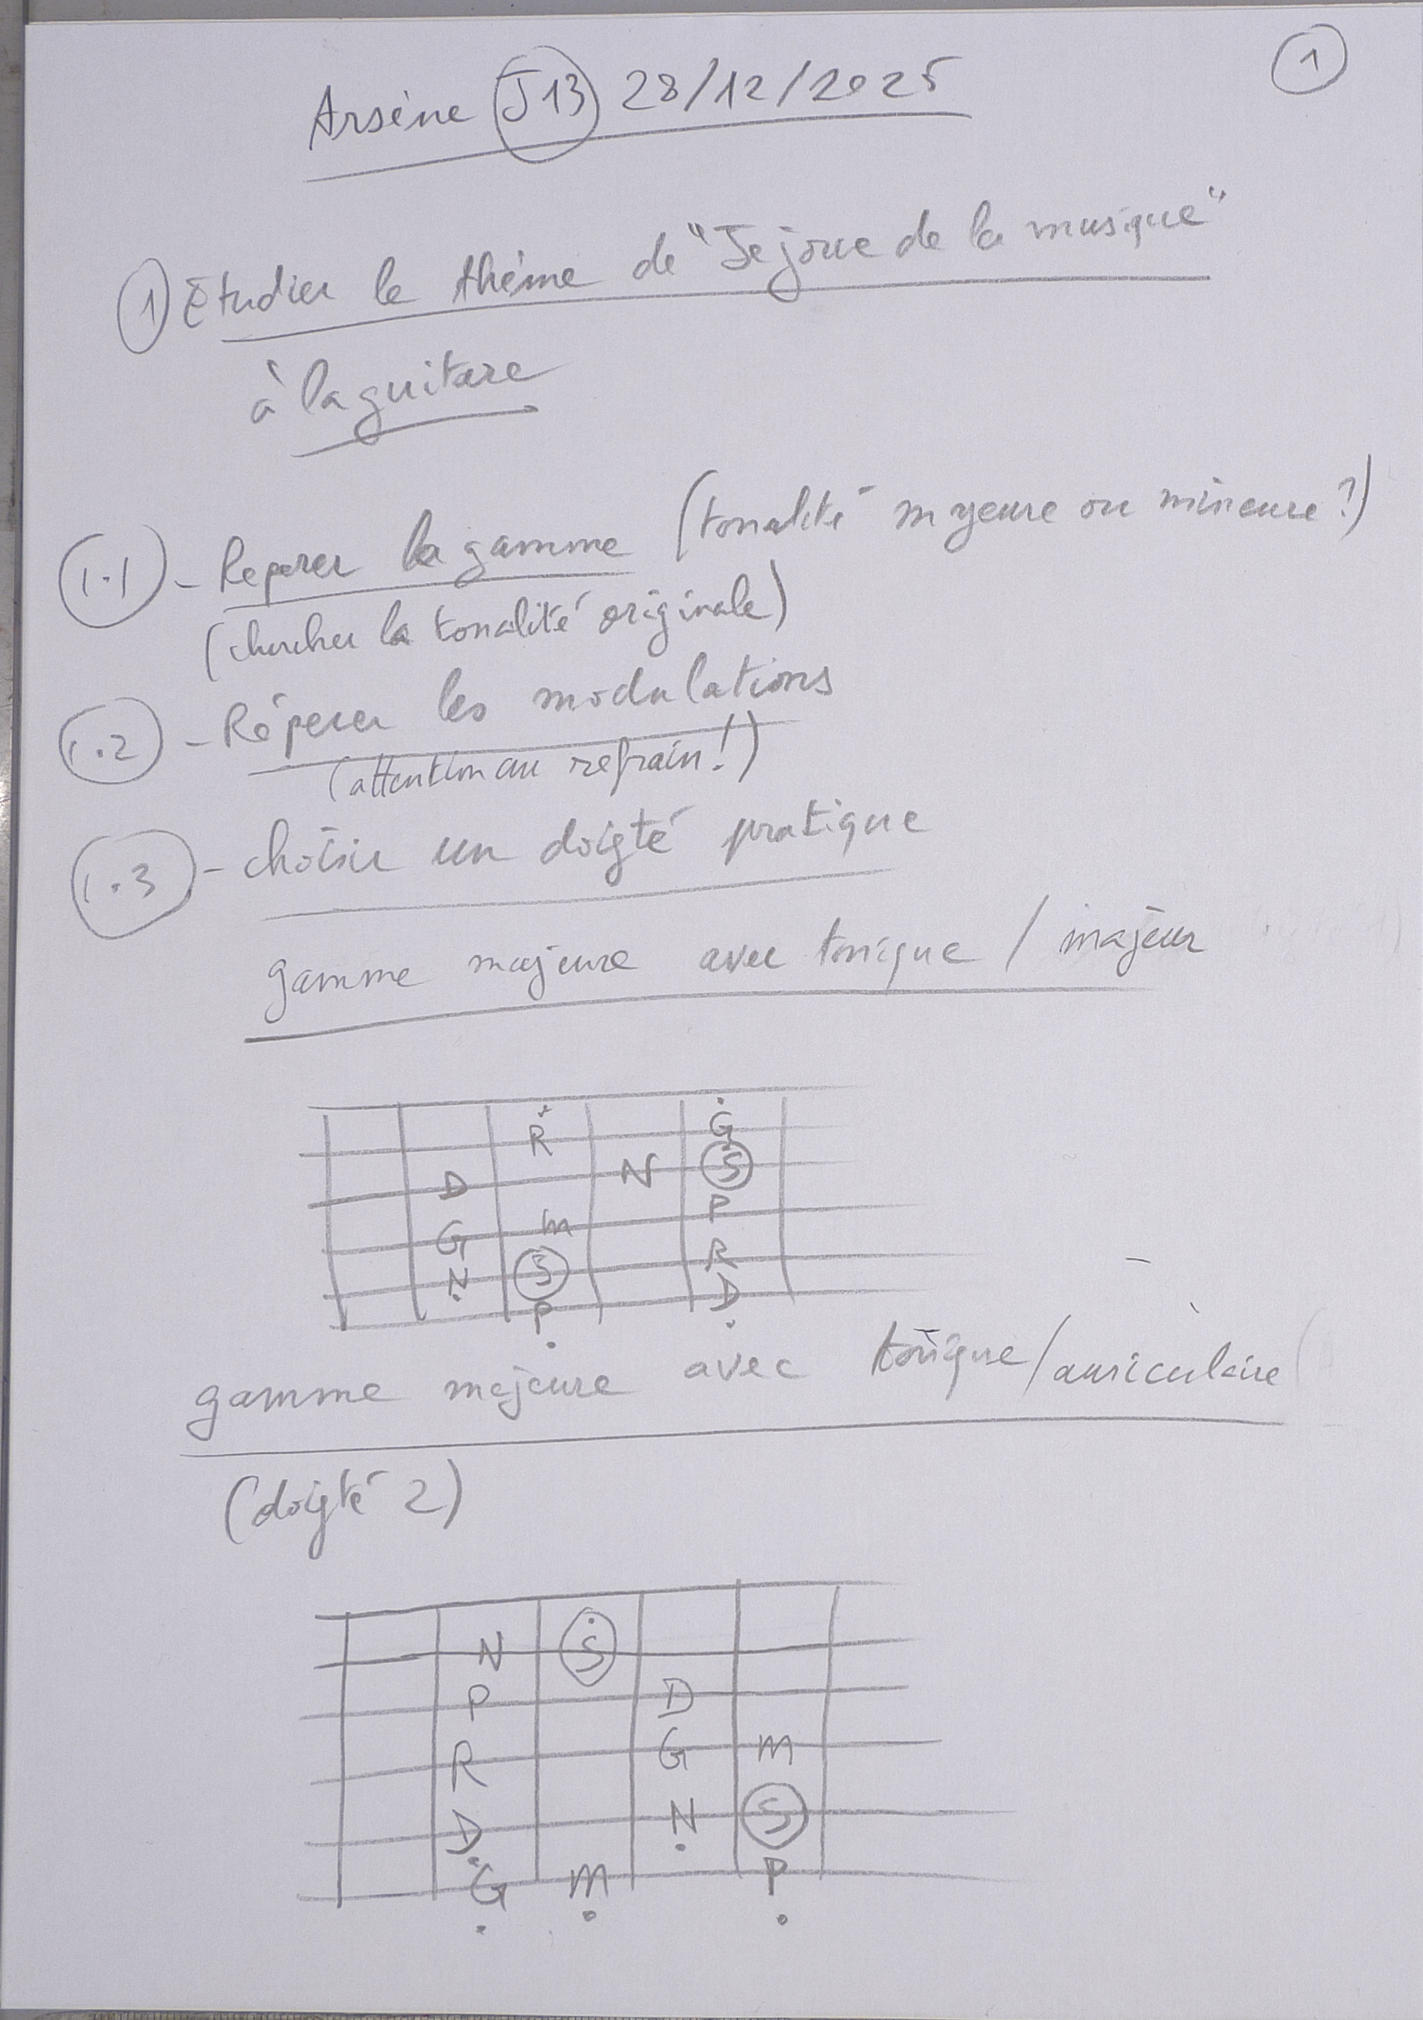 Arsène J13 28/12/2025
1
1 Etudier le thème de "Je joue de la musique"
à la guitare
1.1 - Reperer la gamme (tonalité majeure ou mineure?)
(chercher la tonalité originale)
1.2 - Réperer les modulations
(attention au refrain!)
1.3 - choisir un doigté pratique
gamme majeure avec tonique / majeur
R G
D N S
G m P
N S R
P D
gamme majeure avec tonique/auriculaire
(doigté 2)
N S
P D
R G m
D N S
G m P